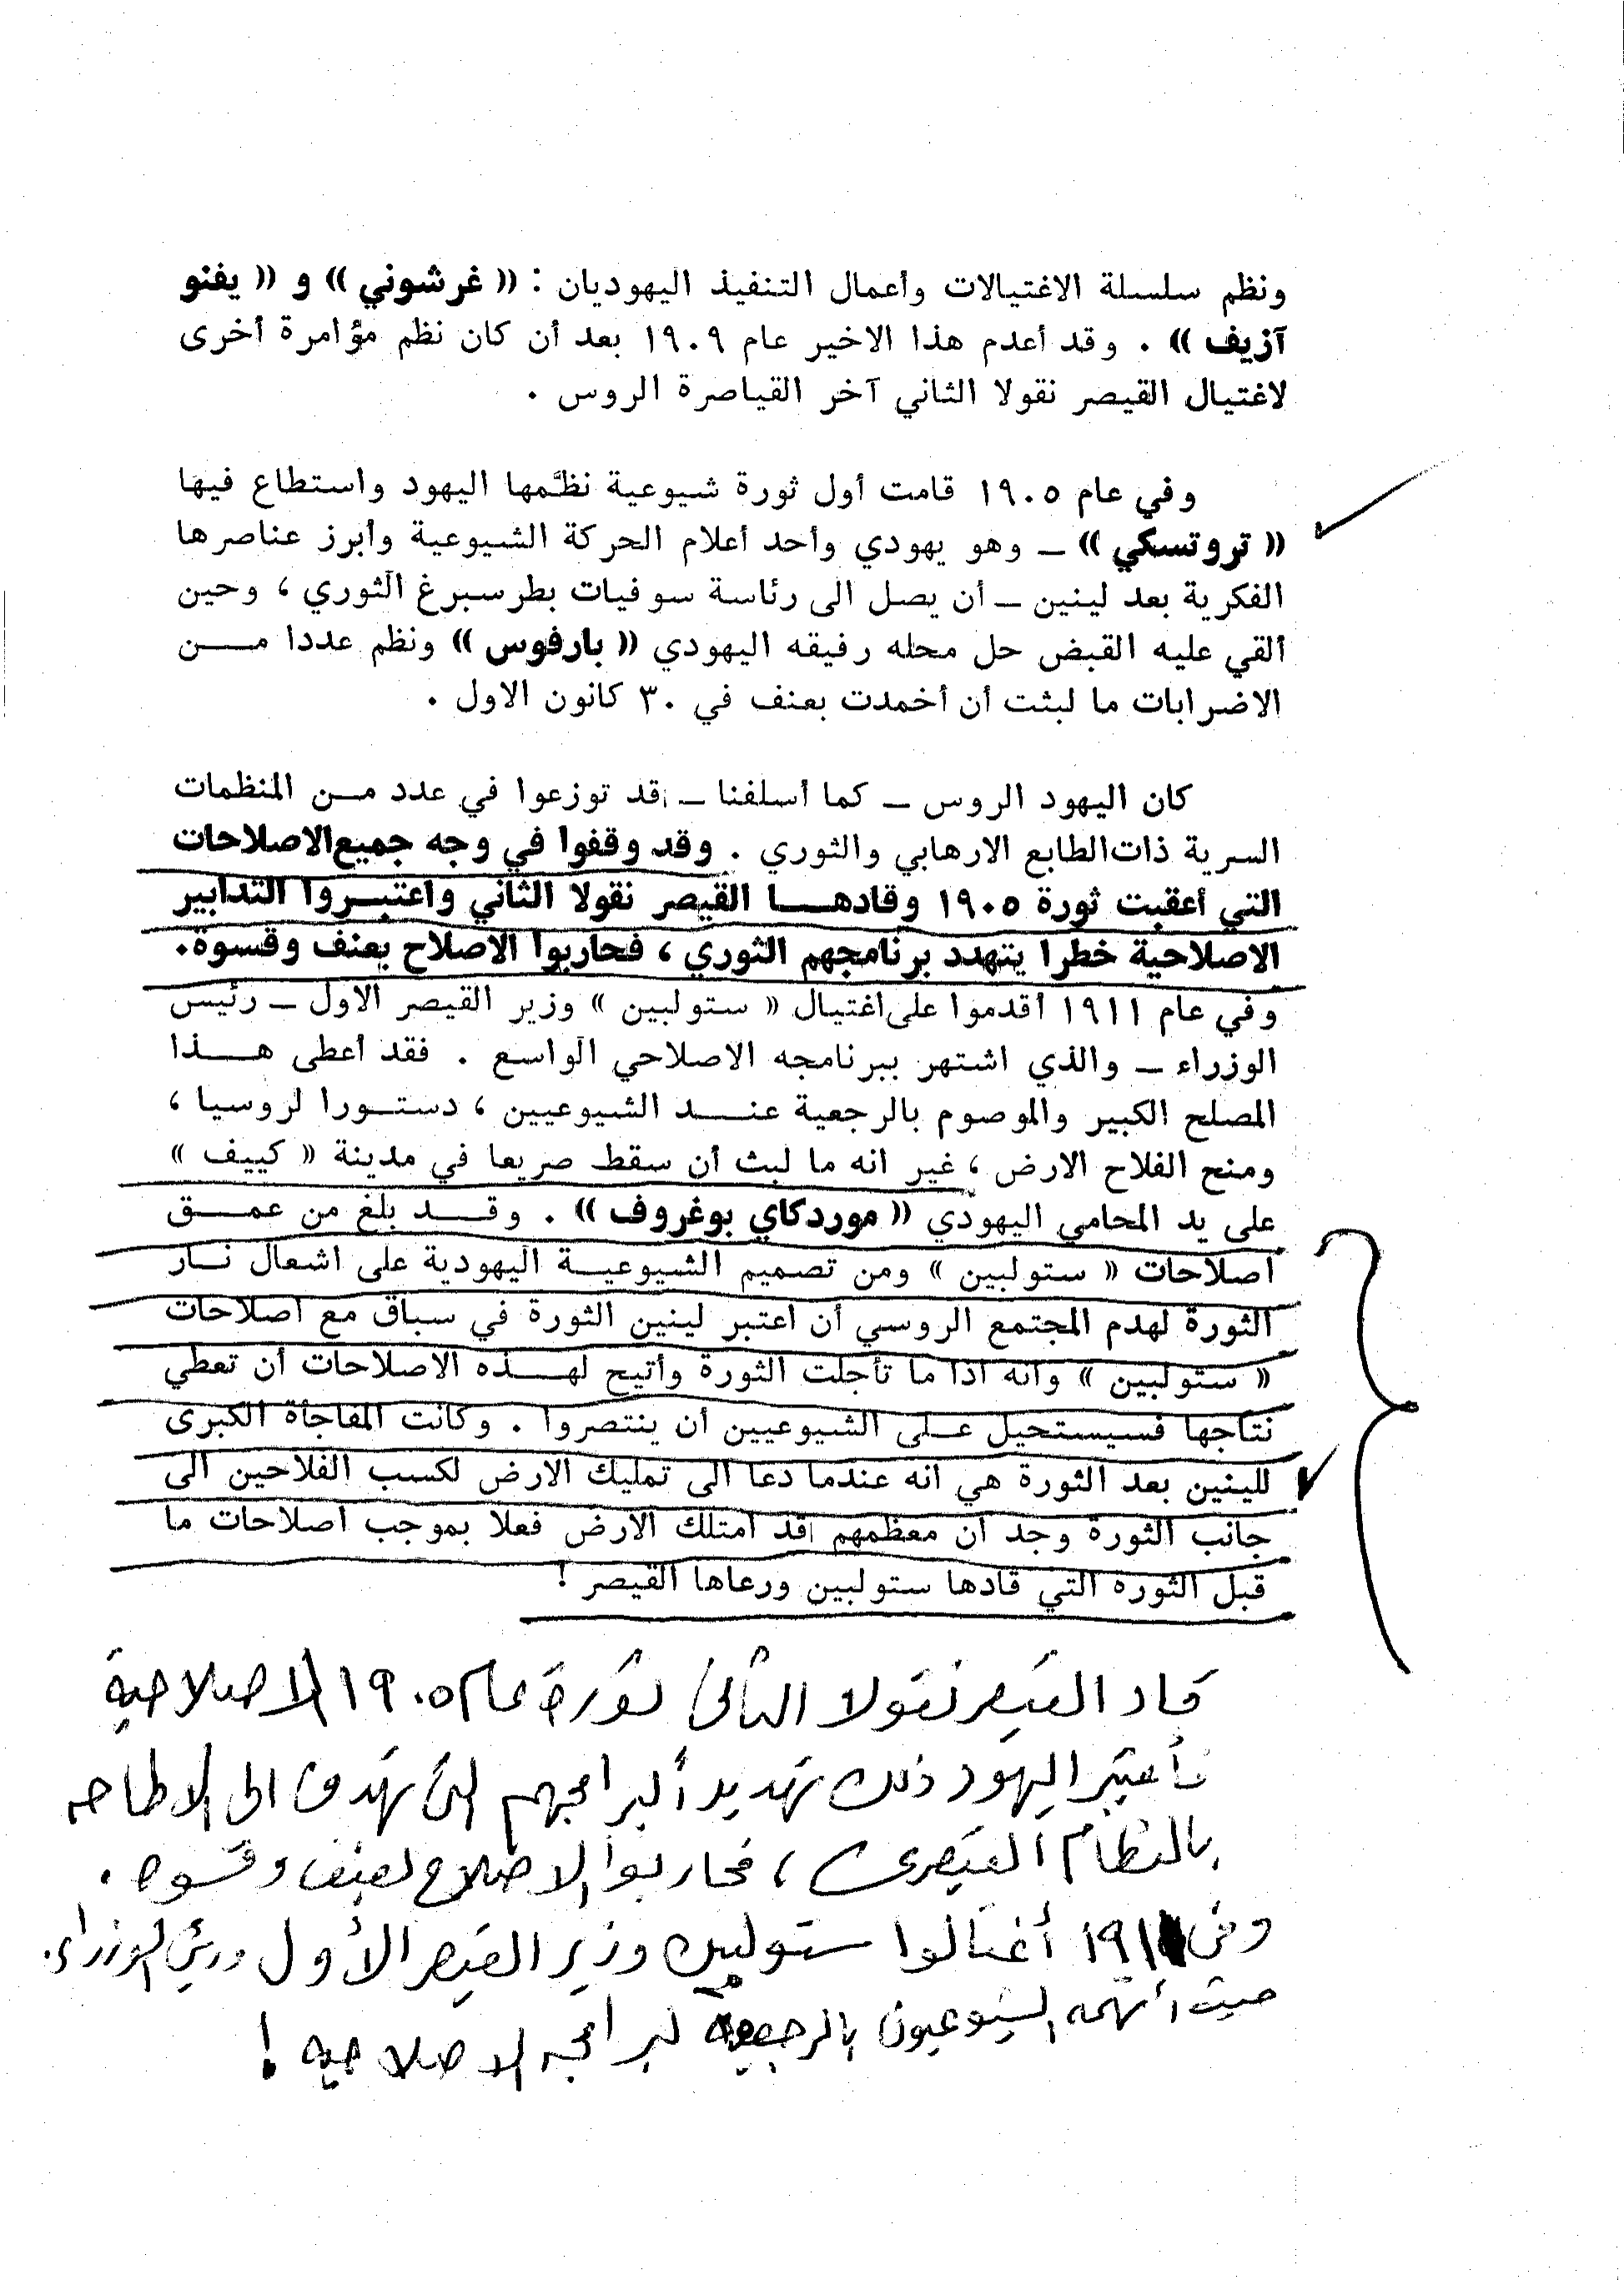 ونظم سلسلة الاغتيالات وأعمال التنفيذ اليهوديان : « غرشوني » و « يفنو
آزيف » . وقد أعدم هذا الاخير عام ١٩٠٩ بعد أن كان نظم مؤامرة أخرى
لاغتيال القيصر نقولا الثاني آخر القياصرة الروس .
وفي عام ١٩٠٥ قامت أول ثورة شيوعية نظّمها اليهود واستطاع فيها
« تروتسكي » ــ وهو يهودي وأحد أعلام الحركة الشيوعية وأبرز عناصرها
الفكرية بعد لينين ــ أن يصل الى رئاسة سوفيات بطرسبرغ الثوري ، وحين
ألقي عليه القبض حل محله رفيقه اليهودي « بارفوس » ونظم عددا مــن
الاضرابات ما لبثت أن أخمدت بعنف في ٣٠ كانون الاول .
كان اليهود الروس ــ كما أسلفنا ــ قد توزعوا في عدد مــن المنظمات
السرية ذات الطابع الارهابي والثوري . وقد وقفوا في وجه جميع الاصلاحات
التي أعقبت ثورة ١٩٠٥ وقادهــا القيصر نقولا الثاني واعتبــروا التدابير
الاصلاحية خطرا يتهدد برنامجهم الثوري ، فحاربوا الاصلاح بعنف وقسوة.
وفي عام ١٩١١ أقدموا على اغتيال « ستولبين » وزير القيصر الاول ــ رئيس
الوزراء ــ والذي اشتهر ببرنامجه الاصلاحي الواسع . فقد أعطى هــذا
المصلح الكبير والموصوم بالرجعية عنــد الشيوعيين ، دستــورا لروسيا ،
ومنح الفلاح الارض ، غير انه ما لبث أن سقط صريعا في مدينة « كييف »
على يد المحامي اليهودي « موردكاي بوغروف » . وقــد بلغ من عمــق
اصلاحات « ستولبين » ومن تصميم الشيوعيــة اليهودية على اشعال نــار
الثورة لهدم المجتمع الروسي أن اعتبر لينين الثورة في سباق مع اصلاحات
« ستولبين » وانه اذا ما تأجلت الثورة وأتيح لهــذه الاصلاحات أن تعطي
نتاجها فسيستحيل عــلى الشيوعيين أن ينتصروا . وكانت المفاجأة الكبرى
للينين بعد الثورة هي انه عندما دعا الى تمليك الارض لكسب الفلاحين الى
جانب الثورة وجد أن معظمهم قد امتلك الارض فعلا بموجب اصلاحات ما
قبل الثورة التي قادها ستولبين ورعاها القيصر !
قاد القيصر نقولا الثانى ثورة عام ١٩٠٥ الاصلاحية
فأعتبر اليهود ذلك تهديداً لبرامجهم التى تهدف الى الاطاحه
بالنظام القيصرى ، فحاربوا الاصلاح بعنف وقسوه .
وفى ١٩١١ أغتالوا ستولبين وزير القيصر الأول ورئيس الوزراء.
حيث أتهمه الشيوعيون بالرجعية لبرامجه الاصلاحيه !